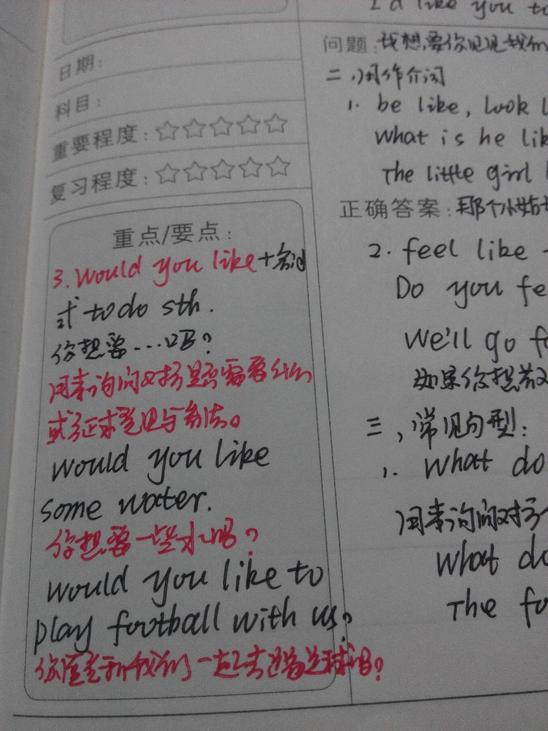 I'd like you to
日期：
科目：
重要程度：☆☆☆☆☆
复习程度：☆☆☆☆☆
重点/要点：
3. Would you like+名词
或 to do sth.
你想要…吗？
用来询问对方是否需要什么
或征求意见与看法。
would you like
some water.
你想要一些水吗？
would you like to
play football with us?
你愿意和我们一起去踢足球吗？
问题：我想要你见见我的
二、词作介词
1. be like, look l
what is he lik
The little girl
正确答案：那个小姑
2. feel like
Do you fe
We'll go fo
如果你想散
三、常见句型：
1. what do
用来询问对方
what do
The fo